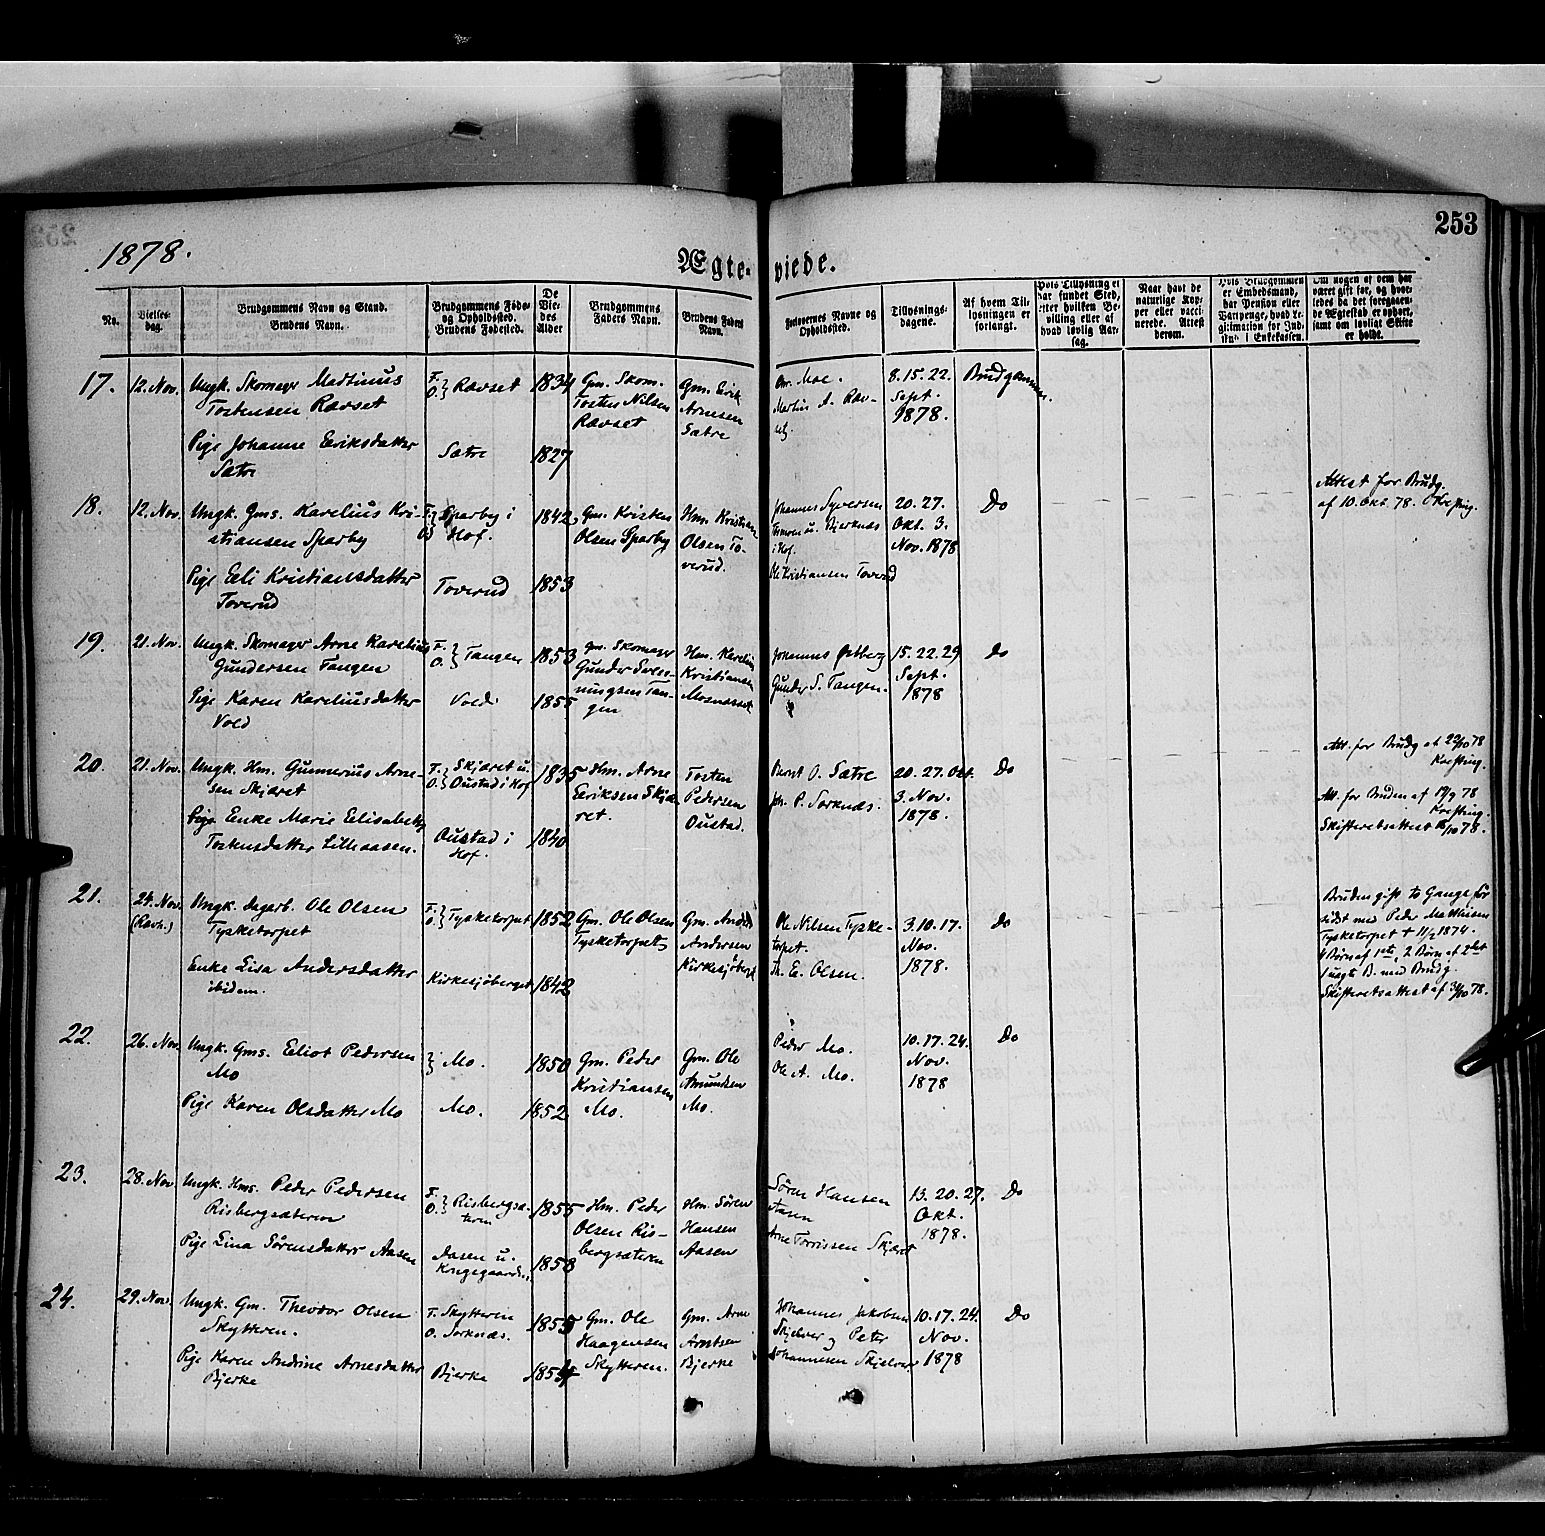 253
1878.
Ægteviede.
No.
Vielses-
dag.
Brudgommens Navn og Stand.
Brudens Navn.
Brudgommens Føde-
og Opholdssted.
Brudens Fødested.
De
Vie-
des
Alder
Brudgommens
Faders Navn.
Brudens Faders
Navn.
Forlovernes Navne og
Opholdssted.
Tillysnings-
dagene.
Af hvem Til-
lysningen er
forlangt.
Hvis Tillysning ei
har fundet Sted,
efter hvilken Be-
villing eller af
hvad lovlig Aar-
sag.
Naar havt de
naturlige Kop-
per eller vacci-
nerede. Attest
derom.
Hvis Brudgommen
er Embedsmand,
har Pension eller
Vartpenge, hvad Le-
gitimation for Ind-
skud i Enkekassen.
Om nogen af dem har
været gift før, og hvor-
ledes da det foregaaen-
de Ægteskab er ophørt,
samt om lovligt Skifte
er holdt.
17.
12. Nov.
Ungk. Skomager Martinus
Tostensen Ravset
Pige Johanne Eriksdatter
Sætre
F.
O. } Ravset
Sætre
1834
1827
Gm. Skom.
Tosten Nilsen
Ravset
Gm. Erik
Arnesen
Sætre
Chr. Moe.
Martin A. Rav-
set.
8. 15. 22.
Sept.
1878.
Brudgommen.
18.
12. Nov.
Ungk. Gms. Karelius Kri-
stiansen Sparby
Pige Eli Kristiansdatter
Toverud
F.
O. } Sparby i
Hof.
Toverud
1842
1853
Gm. Kristen
Olsen Sparby
Hm. Kristian
Olsen To-
verud.
Johannes Syversen
u. Bjerknæs
i Hof.
Ole Kristiansen Toverud
20. 27.
Okt. 3.
Nov. 1878
Do
Attest for Brudg.
af 10. Okt. 78. Krefting.
19.
21. Nov.
Ungk. Skomager Arne Karelius
Gundersen Tangen
Pige Karen Kareliusdatter
Vold
F.
O. } Tangen
Vold
1853
1855
Gm. Skomager
Gunder Sves-
ningsen Tan-
gen
Hm. Karelius
Kristiansen
Mosnæsset
Johannes Østberg
Gunder S. Tangen.
15. 22. 29.
Sept.
1878
Do
20.
21. Nov.
Ungk. Hm. Gunnerius Arne-
sen Skjæret
Enke Marie Elisabeth
Tostensdatter Lilleaasen.
F. } Skjæret u.
O. } Oustad i Hof
Oustad i
Hof.
1835
1840
Hm. Arne
Eriksen Skjæ-
ret.
Tosten
Pedersen
Oustad.
Bernt O. Sætre
Joh. P. Sorknæs.
20. 27. Okt.
3. Nov.
1878.
Do
Att. for Brudg af 22/10 78
Krefting.
Att. for Bruden af 19/9 78
Krefting.
Skifteretsattest 15/10 78.
21.
24. Nov.
Ungk. Dagarb. Ole Olsen
Tysketorpet
Enke Lisa Andersdatter
ibidem.
F.
O. } Tysketorpet
Kirkesjöberget
1852
1842
Gm. Ole Olsen
Tysketorpet
Gm. Anders
Andersen
Kirkesjöberget
Ole Nilsen Tyske-
torpet.
E. Olsen.
3. 10. 17.
Nov.
1878.
Do
Bruden gift to Gange før
sidst med Peder Matthisen
Tysketorpet † 11/2 1874.
4 Børn af 1ste, 2 Børn af 2det
1 uægte B. med Brudg.
Skifteretsattest af 30/10 78.
22.
26. Nov.
Ungk. Gms. Eliot Pedersen
Mo
Pige Karen Olsdatter Mo
} Mo.
Mo.
1850
1852
Gm. Peder
Kristiansen
Mo.
Gm. Ole
Amundsen
Mo.
Peder Mo.
Ole A. Mo.
10. 17. 24.
Nov.
1878
Do
23.
28. Nov
Ungk. Hms. Peder Pedersen
Risbergsæteren
Pige Lina Sørensdatter Aasen
F.
O. } Risbergsæ-
teren
Aasen u.
1855
1858
Hm. Peder
Olsen Ris-
bergsæteren
Hm. Sören
Hansen
Aasen
Sören Hansen
Aasen
Arne Torrissen Skjæret
13. 20. 27.
Okt.
1878.
Do
24.
29. Nov.
Ungk. Gm. Theodor Olsen
Skytteren.
Pige Karen Andrine Arnesdatter
Bjerke
F. Skytteren
O. Sorknæs.
Bjerke
1855
1854
Gm. Ole
Haagensen
Skytteren.
Gm. Arne
Arntsen
Bjerke
Johannes Jakobsen
Skjelver og Peter
Johannesen Skjelver
10. 17. 24.
Nov.
1878
Do